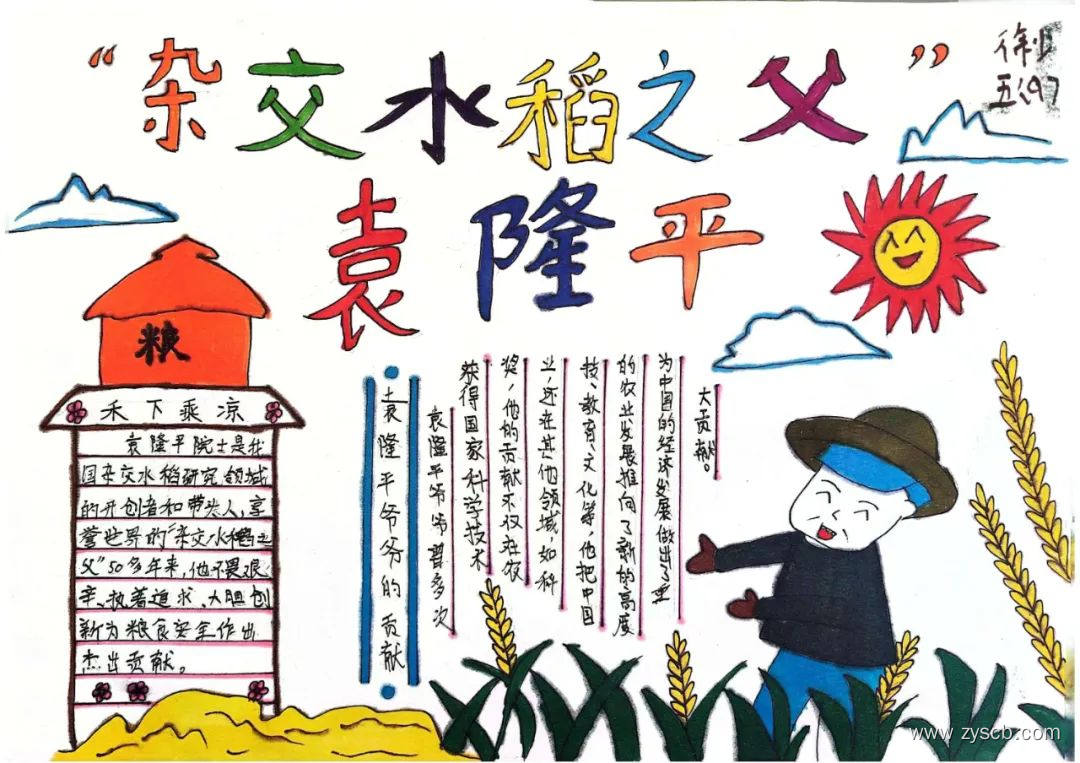 “杂交水稻之父”
袁隆平
五(9)
粮
禾下乘凉
袁隆平院士是我
国杂交水稻研究领域
的开创者和带头人,享
誉世界的“杂交水稻之
父”50多年来,他不畏艰
辛、执着追求、大胆创
新为粮食安全作出
杰出贡献。
袁隆平爷爷的贡献
袁隆平爷爷曾多次
获得国家科学技术
奖,他的贡献不仅在农
业,还在其他领域,如科
技、教育、文化等,他把中国
的农业发展推向了新的高度
为中国的经济发展做出了重
大贡献。
www.zyscb.com